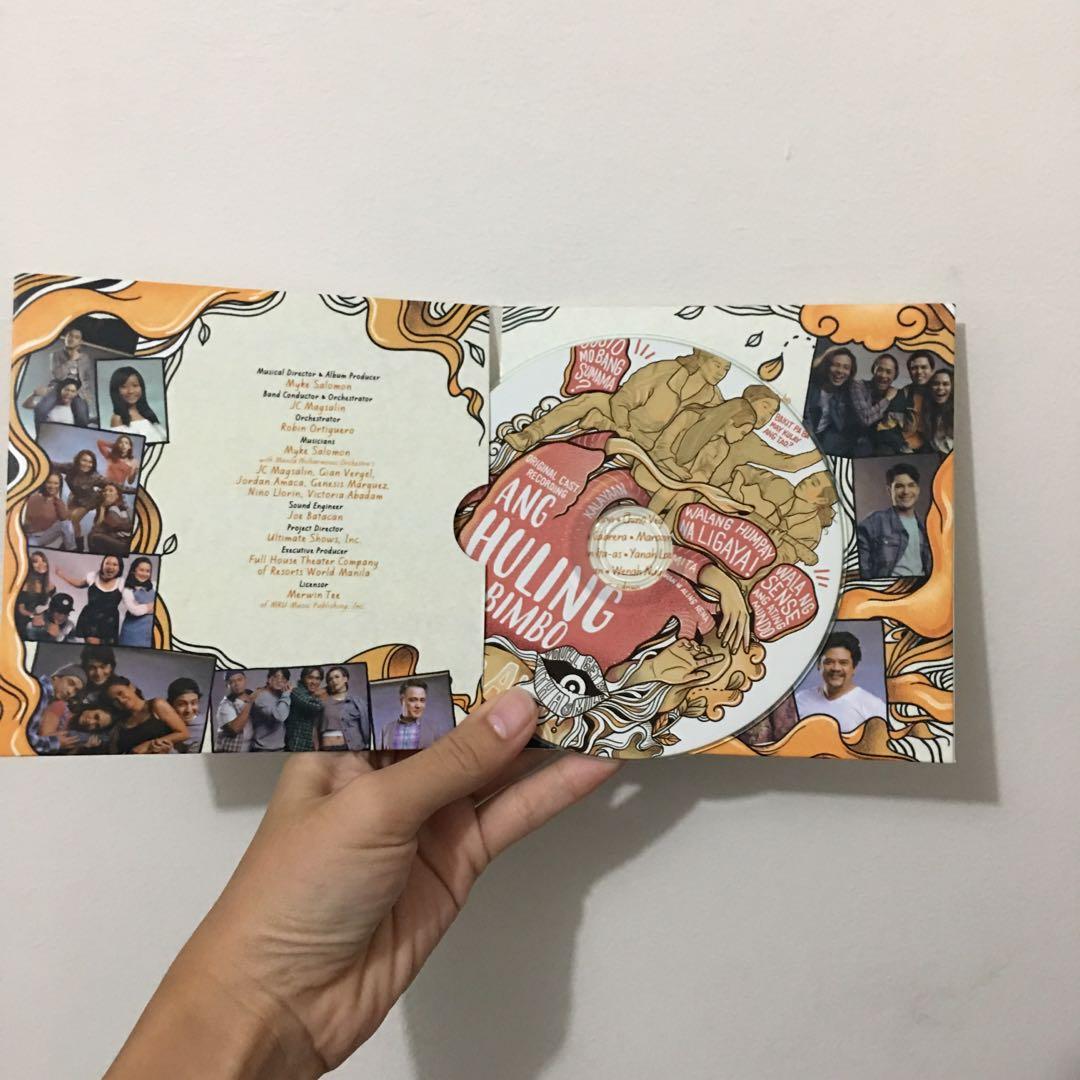 Musical Director & Album Producer
Myke Salomon
Band Conductor & Orchestrator
JC Magsalin
Orchestrator
Robin Ortiguero
Musicians
Myke Salomon
with Manila Philharmonic Orchestra's
JC Magsalin, Gian Vergel,
Jordan Amaca, Genesis Marquez,
Nino Llorin, Victoria Abadam
Sound Engineer
Joe Batacan
Project Director
Ultimate Shows, Inc.
Executive Producer
Full House Theater Company
of Resorts World Manila
Licensor
Merwin Tee
of MRU Music Publishing, Inc.
MO BANG
SUMAMA
?
BAKIT PA BA
MAY KULAY
ANG TAO?
ORIGINAL CAST
RECORDING
ANG
HULING
BIMBO
KALAYAAN
WALANG HUMPAY
NA LIGAYA!
WALA NG
SENSE
ANG ATING
MUNDO